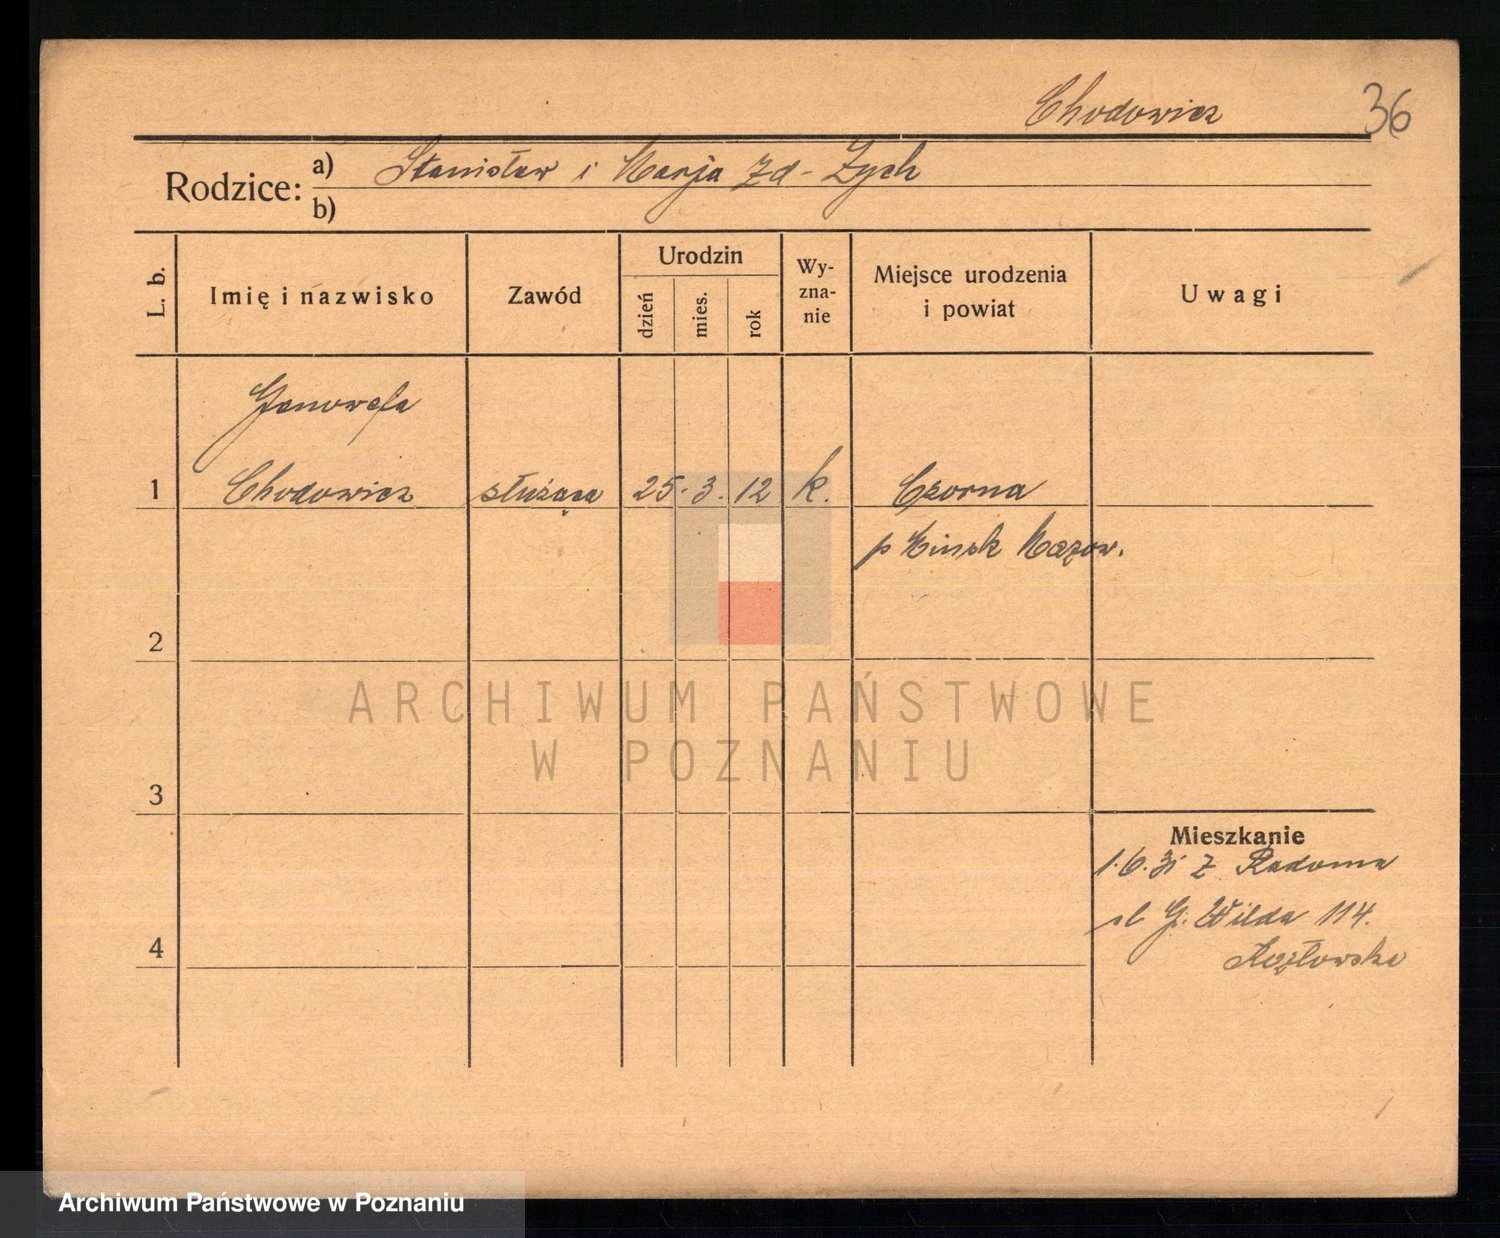 Chodowicz 36
Rodzice: a) Stanisław i Marja zd - Zych
b)
L. b. Imię i nazwisko Zawód Urodzin dzień mies. rok Wy-zna-nie Miejsce urodzenia i powiat Uwagi
Genowefa
1 Chodowicz służąca 25. 3. 12 k. Czarna
p Mińsk Mazow.
2
ARCHIWUM PAŃSTWOWE
W POZNANIU
3
Mieszkanie
1.6.31 z Radoma
G. Wilda 114.
4 Kozłowska
Archiwum Państwowe w Poznaniu